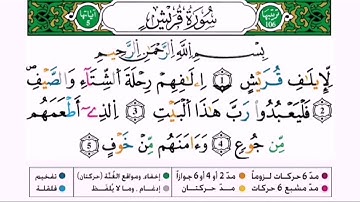 ترتيبها 106 سُورَةُ قُرَيْشٍ آياتها 5
بِسْمِ ٱللَّهِ ٱلرَّحْمَٰنِ ٱلرَّحِيمِ
لِإِيلَٰفِ قُرَيْشٍ 1 إِۦلَٰفِهِمْ رِحْلَةَ ٱلشِّتَآءِ وَٱلصَّيْفِ
2 فَلْيَعْبُدُوا۟ رَبَّ هَٰذَا ٱلْبَيْتِ 3 ٱلَّذِىٓ أَطْعَمَهُم
مِّن جُوعٍ 4 وَءَامَنَهُم مِّنْ خَوْفٍ 5
مدّ 6 حركات لزوماً مدّ 2 أو 4 أو 6 جوازاً إخفاء، ومواقع الغُنَّة (حركتان) تفخيم
مدّ مشبع 6 حركات مدّ حركتان إدغام، وما لا يُلفَظ قلقلة